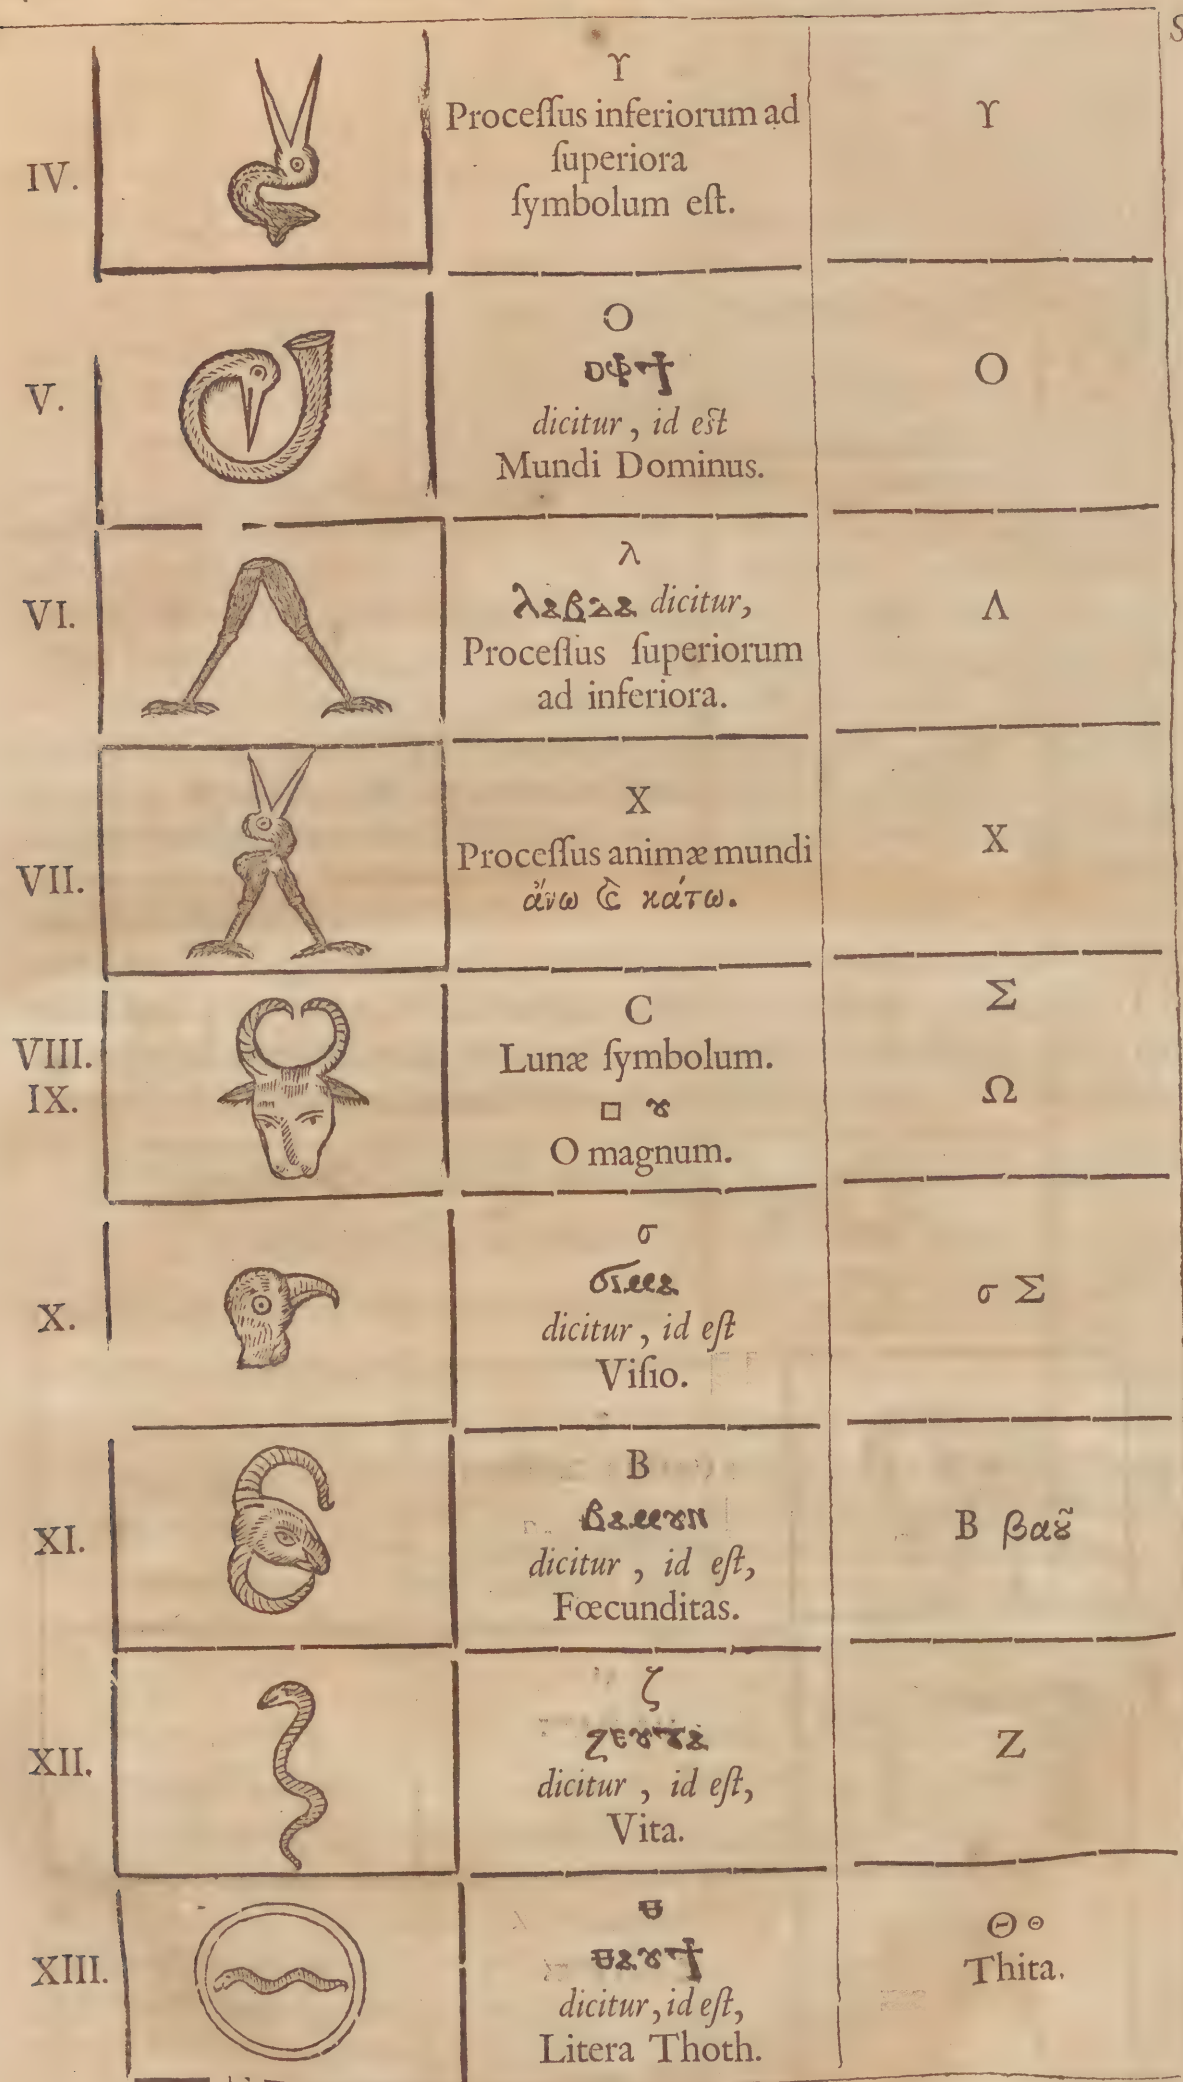 S
IV.
ϒ
Proceſſus inferiorum ad
ſuperiora
ſymbolum eſt.
ϒ
V.
O
dicitur, id eſt
Mundi Dominus.
O
VI.
λ
ⲗⲁⲃⲇⲁ dicitur,
Proceſſus ſuperiorum
ad inferiora.
Λ
VII.
X
Proceſſus animæ mundi
ἄνω ϗ̀ κάτω.
X
VIII.
IX.
C
Lunæ ſymbolum.
□ ȣ
O magnum.
Σ
Ω
X.
σ
dicitur, id eſt
Viſio.
σ Σ
XI.
B
dicitur, id eſt,
Fœcunditas.
B βαȣ͂
XII.
ζ
dicitur, id eſt,
Vita.
Z
XIII.
ⲑ
dicitur, id eſt,
Litera Thoth.
Θ Θ
Thita.